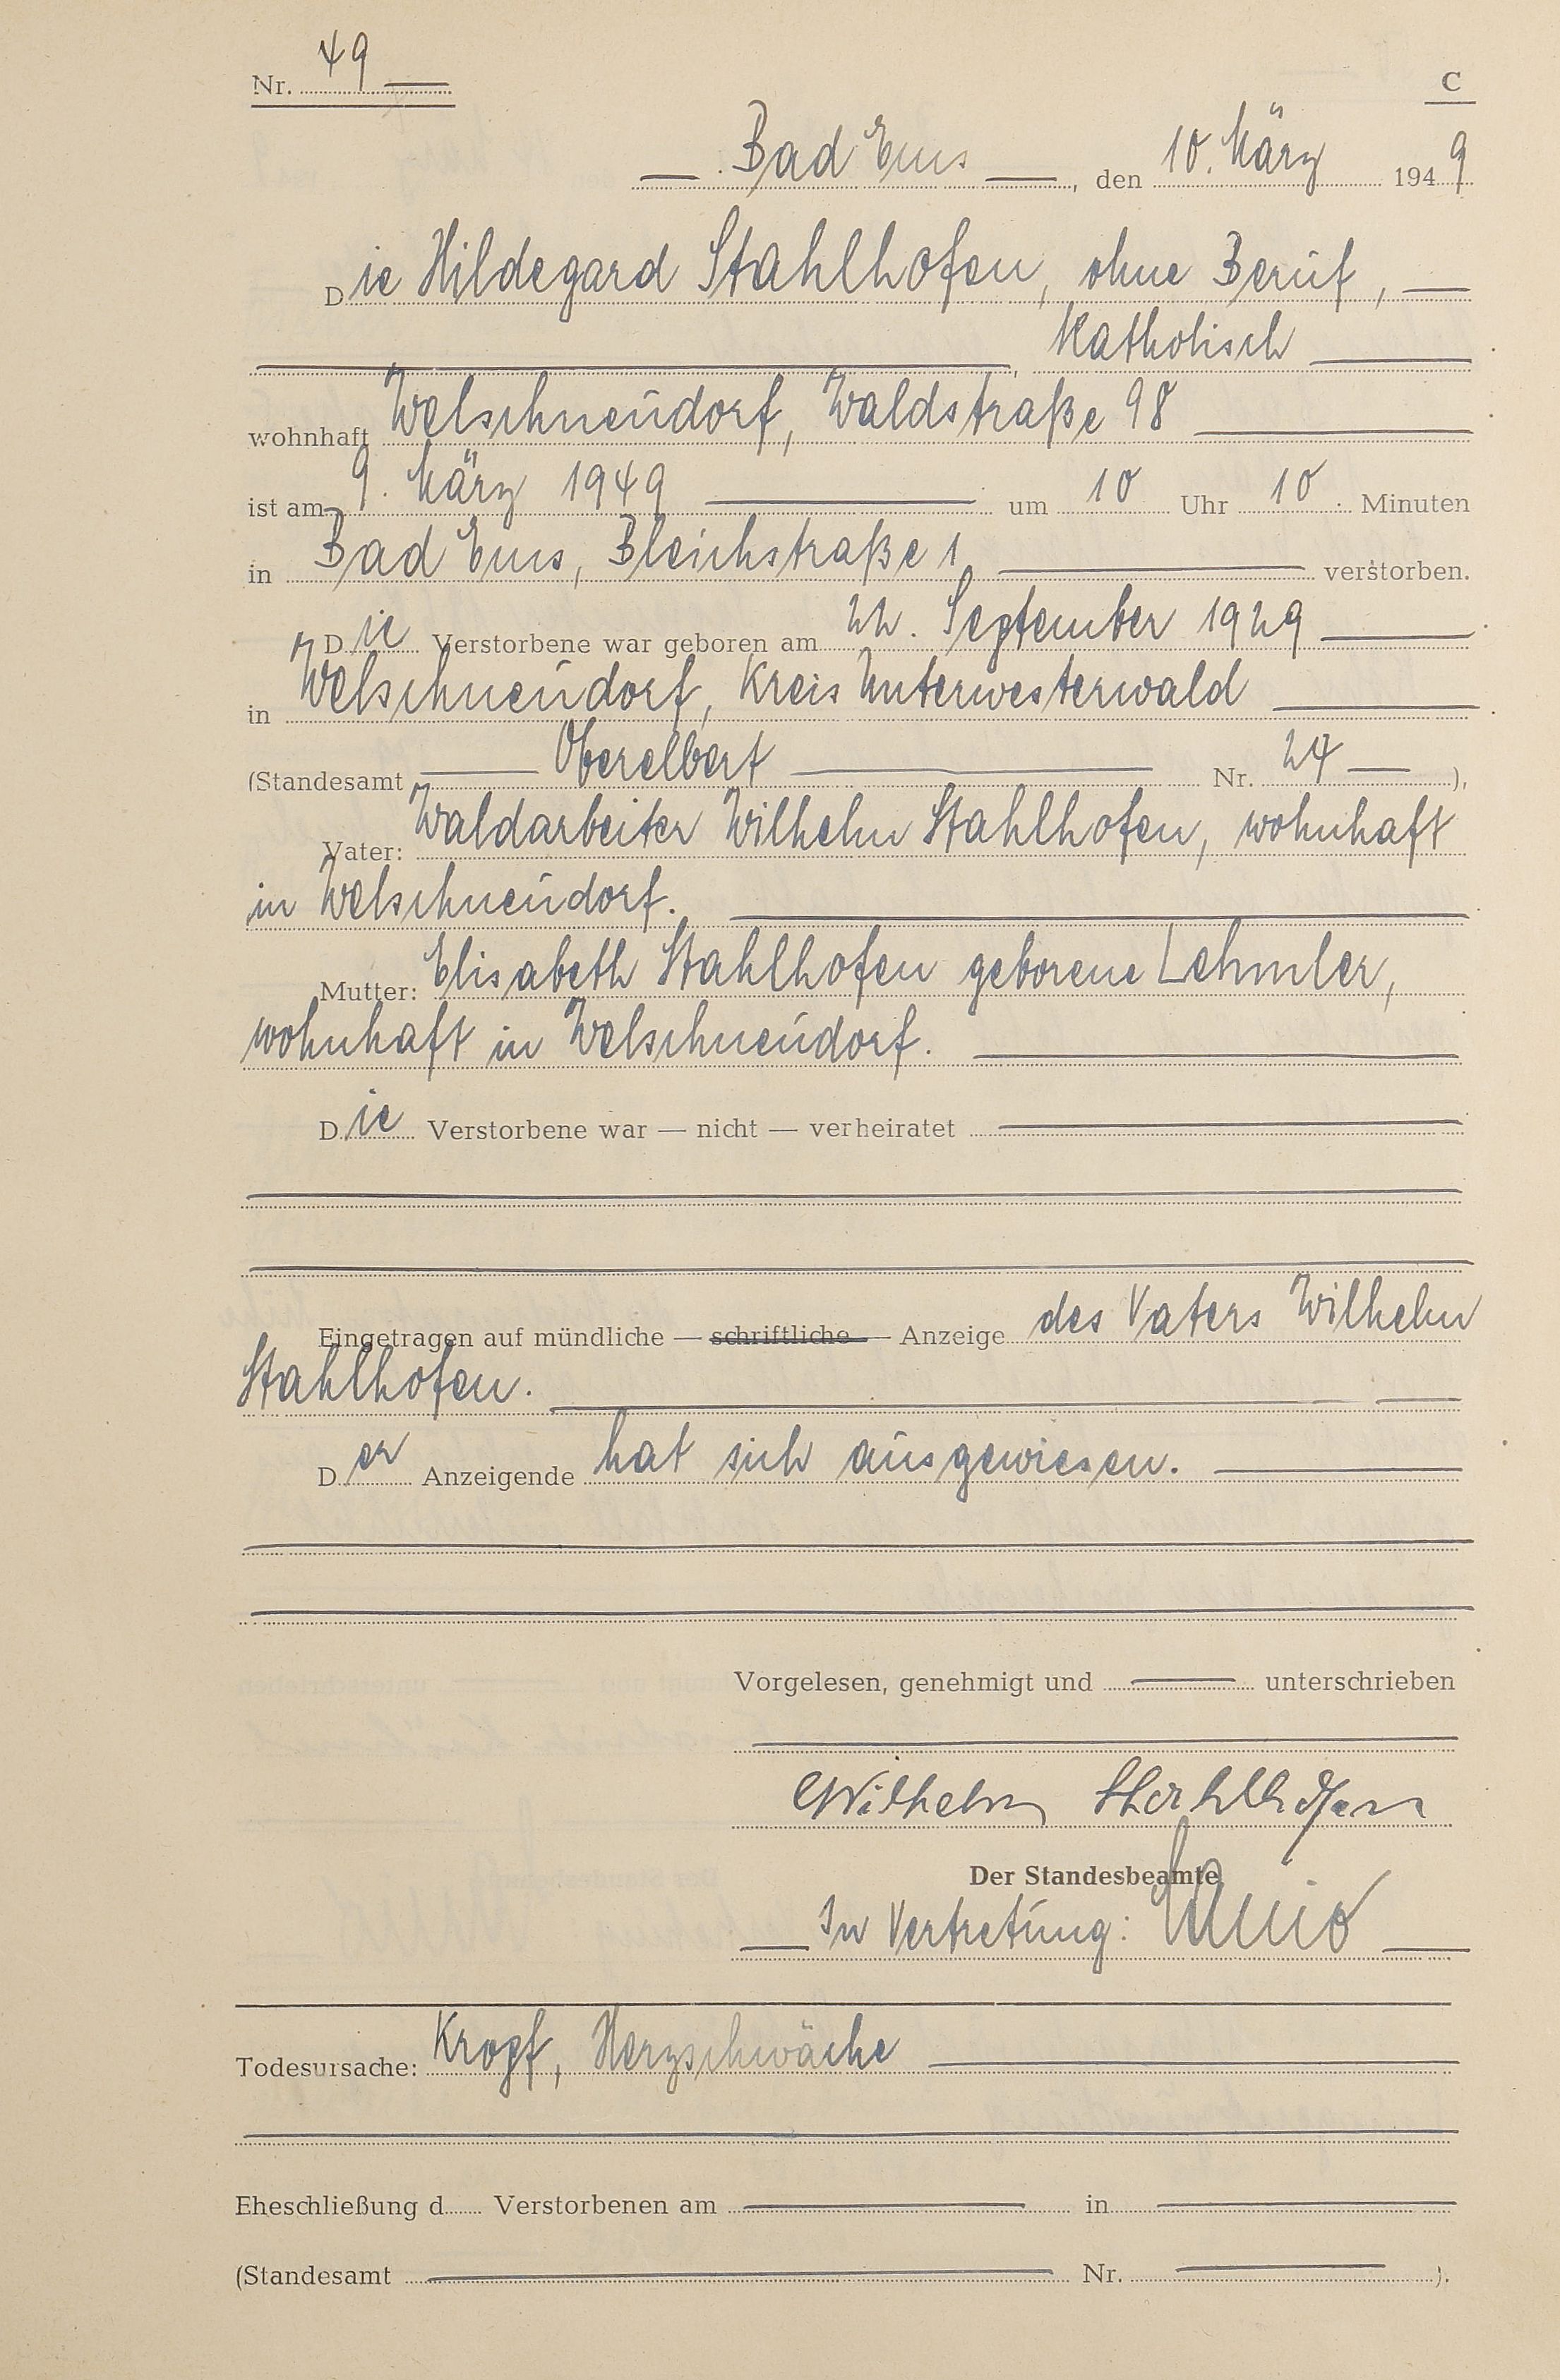 Nr. 49
C
Bad Ems, den 10. März 1949
Die Hildegard Stahlhofen, ohne Beruf,
Katholisch
wohnhaft Welschneudorf, Waldstraße 98
ist am 9. März 1949 um 10 Uhr 10 Minuten
in Bad Ems, Bleichstraße 1 verstorben.
Die Verstorbene war geboren am 22. September 1929
in Welschneudorf, Kreis Unterwesterwald
(Standesamt Oberelbert Nr. 24),
Vater: Waldarbeiter Wilhelm Stahlhofen, wohnhaft
in Welschneudorf.
Mutter: Elisabeth Stahlhofen geborene Lehmler,
wohnhaft in Welschneudorf.
Die Verstorbene war — nicht — verheiratet
Eingetragen auf mündliche — schriftliche — Anzeige des Vaters Wilhelm
Stahlhofen.
Der Anzeigende hat sich ausgewiesen.
Vorgelesen, genehmigt und unterschrieben
Wilhelm Stahlhofen
Der Standesbeamte
In Vertretung:
Todesursache: Kropf, Herzschwäche
Eheschließung d Verstorbenen am in
(Standesamt Nr. ).